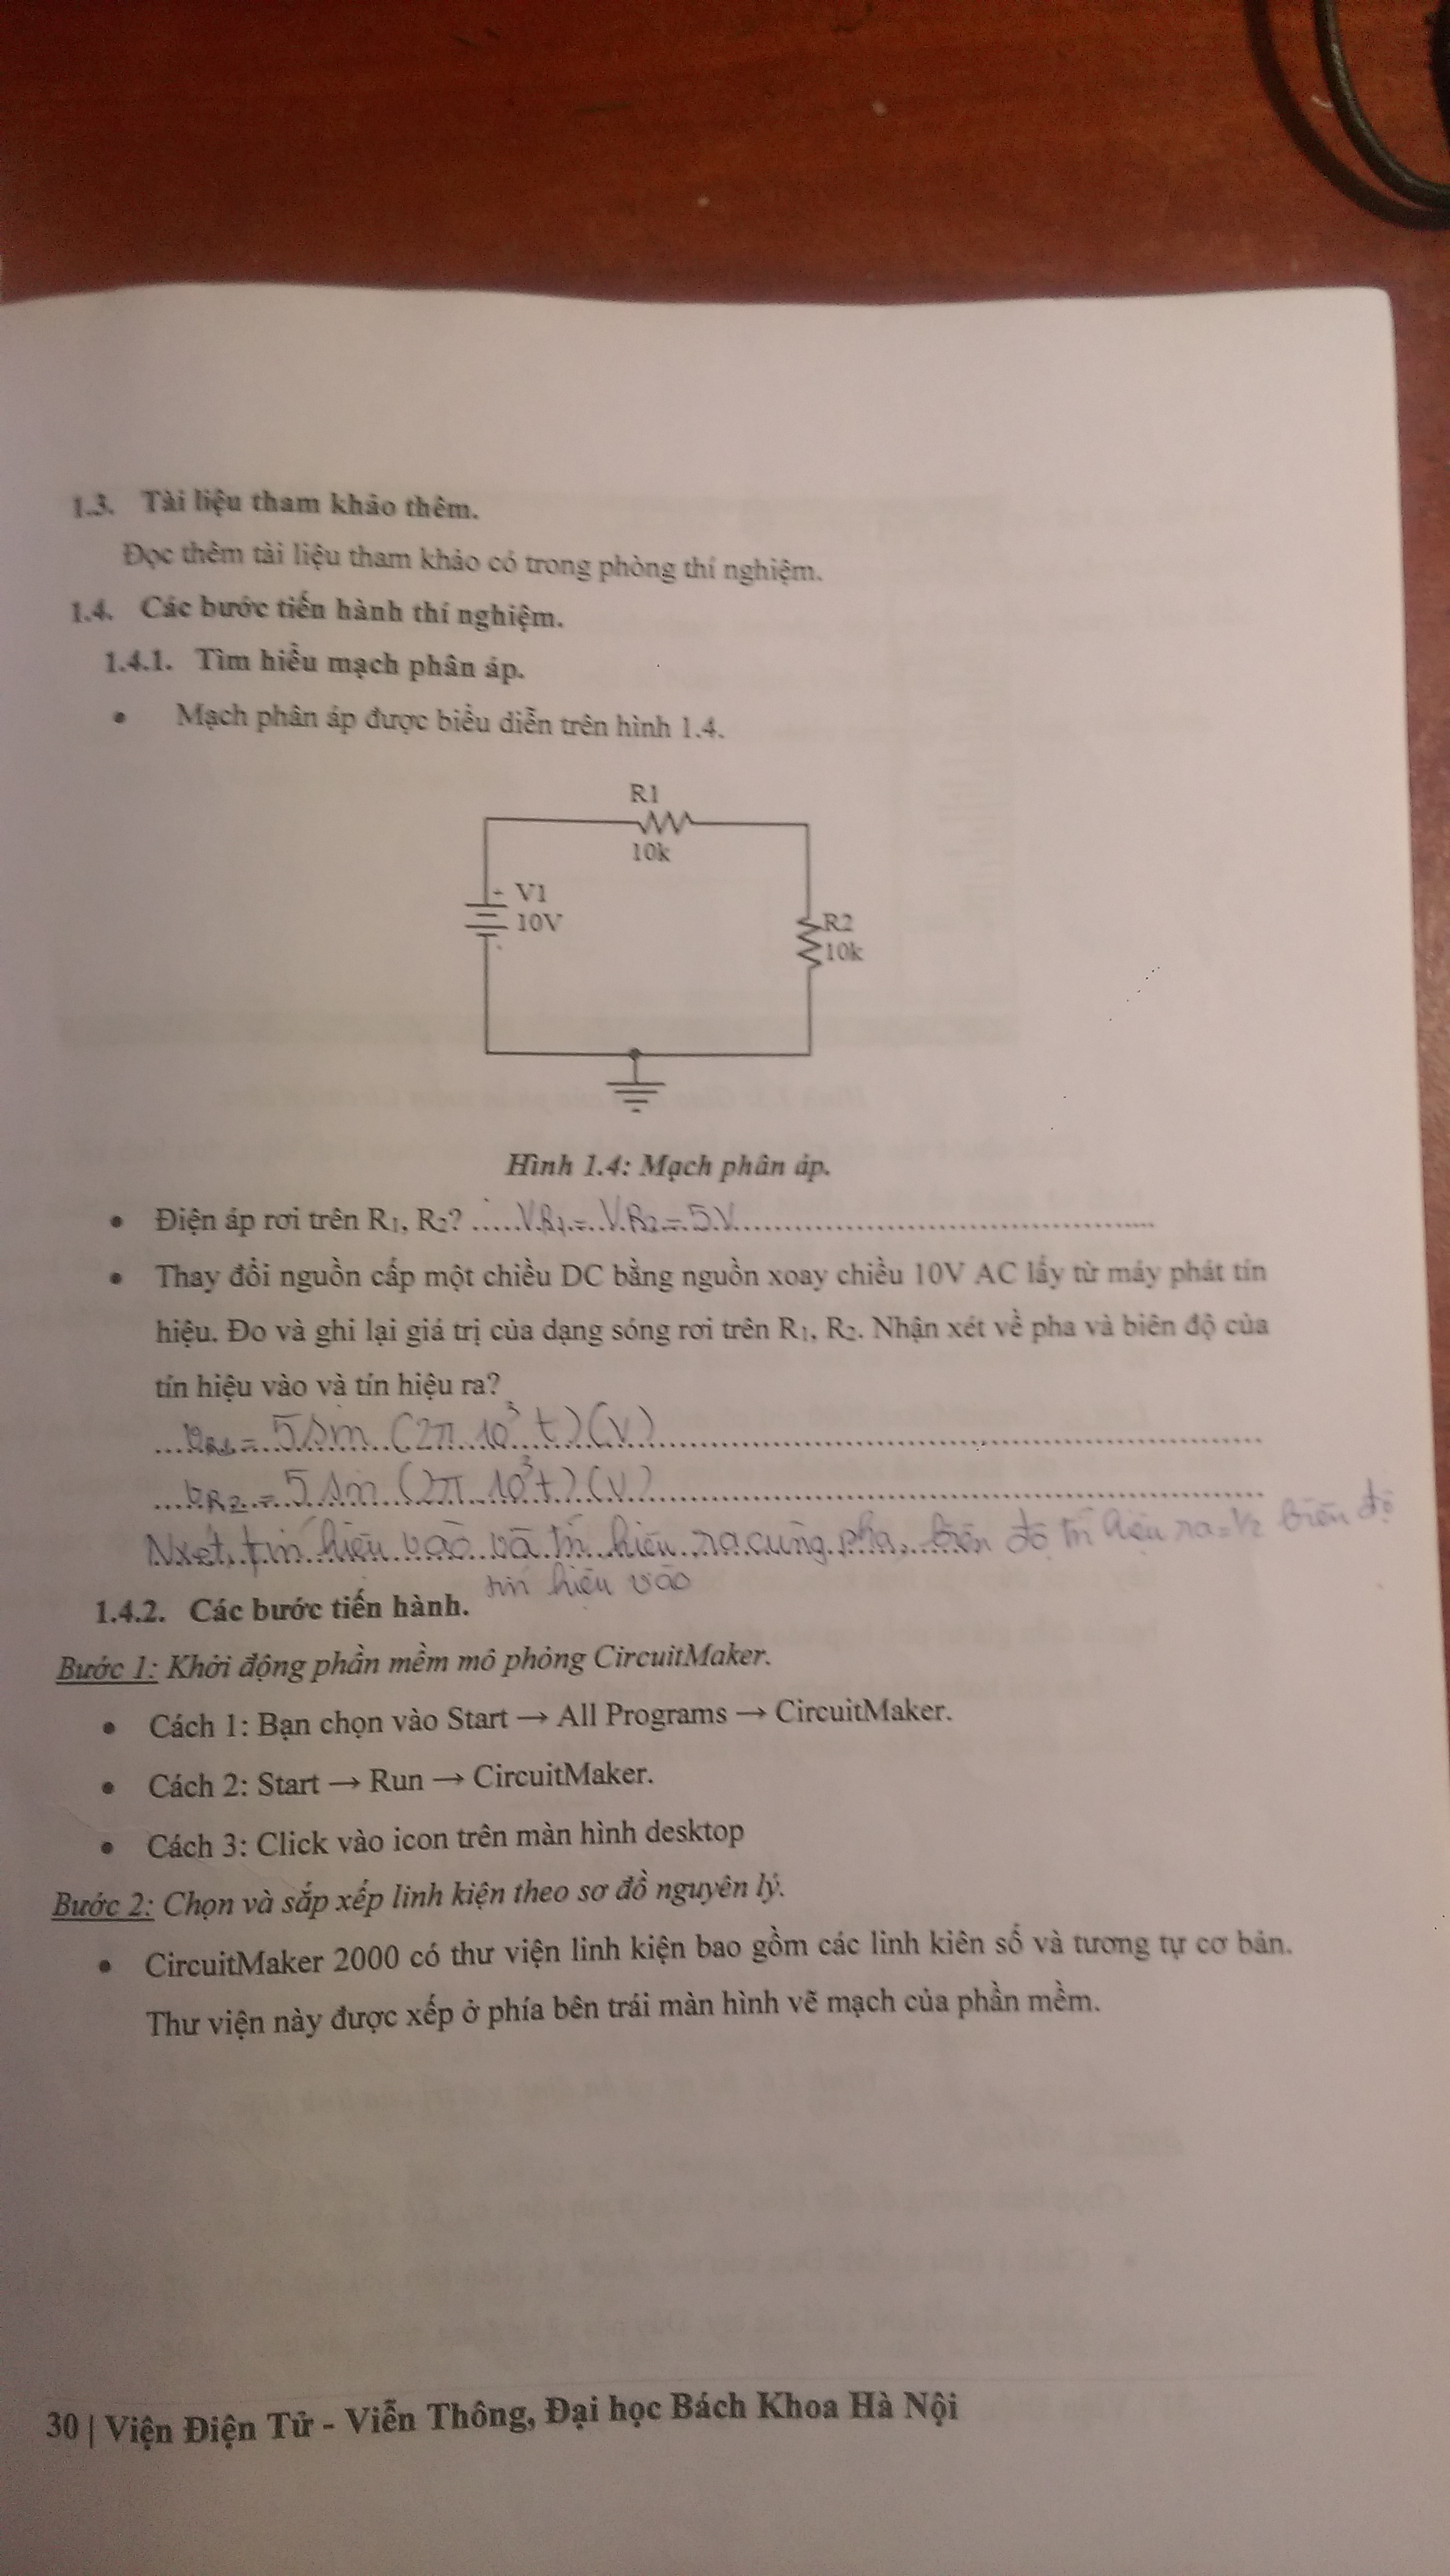 1.3. Tài liệu tham khảo thêm.
Đọc thêm tài liệu tham khảo có trong phòng thí nghiệm.
1.4. Các bước tiến hành thí nghiệm.
1.4.1. Tìm hiểu mạch phân áp.
• Mạch phân áp được biểu diễn trên hình 1.4.
R1
10k
+ V1
10V
R2
10k
Hình 1.4: Mạch phân áp.
• Điện áp rơi trên R1, R2? ..... VR1 = VR2 = 5V
• Thay đổi nguồn cấp một chiều DC bằng nguồn xoay chiều 10V AC lấy từ máy phát tín
hiệu. Đo và ghi lại giá trị của dạng sóng rơi trên R1, R2. Nhận xét về pha và biên độ của
tín hiệu vào và tín hiệu ra?
vR1 = 5 sin (2π 10³ t) (V)
vR2 = 5 sin (2π 10³ t) (V)
Nxét, tín hiệu vào và tín hiệu ra cùng pha, biên độ tín hiệu ra = 1/2 biên độ
tín hiệu vào
1.4.2. Các bước tiến hành.
Bước 1: Khởi động phần mềm mô phỏng CircuitMaker.
• Cách 1: Bạn chọn vào Start → All Programs → CircuitMaker.
• Cách 2: Start → Run → CircuitMaker.
• Cách 3: Click vào icon trên màn hình desktop
Bước 2: Chọn và sắp xếp linh kiện theo sơ đồ nguyên lý.
• CircuitMaker 2000 có thư viện linh kiện bao gồm các linh kiên số và tương tự cơ bản.
Thư viện này được xếp ở phía bên trái màn hình vẽ mạch của phần mềm.
30 | Viện Điện Tử - Viễn Thông, Đại học Bách Khoa Hà Nội